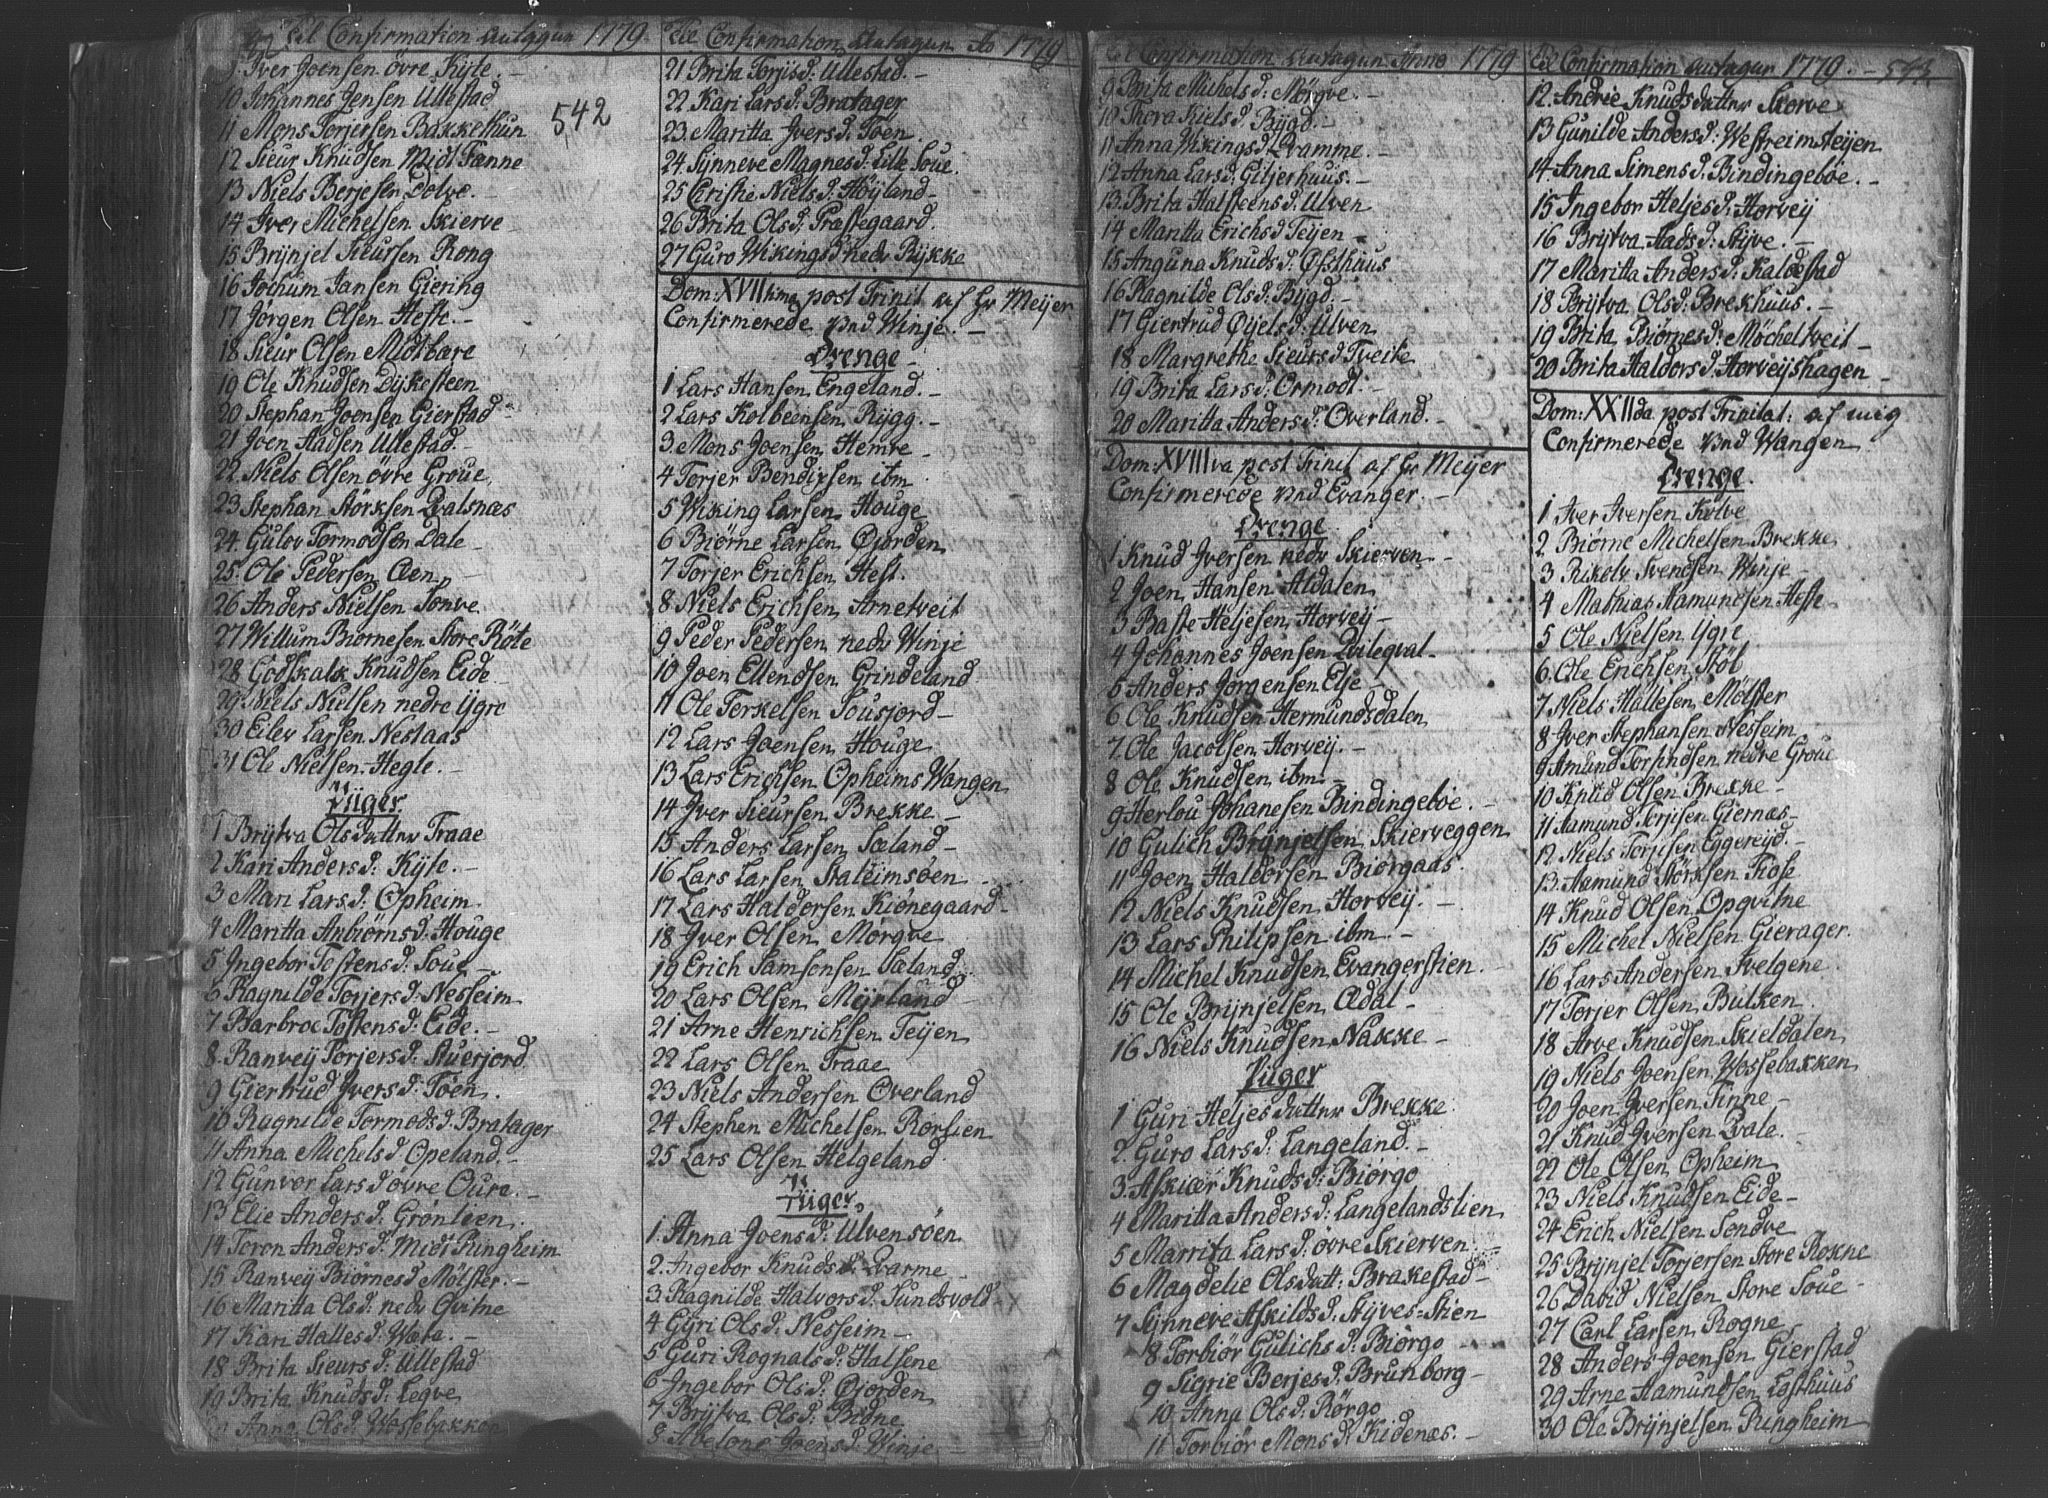 Til Confirmation antagne 1779.
9 Iver Joensen øvre Kÿte. -
10 Johannes Jensen Ullestad
11 Mons Torjersen Bakkethun
542
12 Sieur Knudsen Midt Tænne
13 Niels Berjesen Dolve. -
14 Iver Michelsen Skierve -
15 Brÿnjel Sieursen Rong
16 Jochum Jansen Giering
17 Jørgen Olsen Hefte. -
18 Sieur Olsen Midtbare
19 Ole Knudsen Dÿkesteen
20 Stephan Joensen Gierstad
21 Joen Aadsen Ullestad.
22 Niels Olsen øvre Groue,
23 Stephan Størksen Qvalsnæs
24. Gulov Tormodsen Dale -
25. Ole Pedersen Øen, -
26 Anders Nielsen Sonve.
27 Willum Biørnesen Store Røte
28 Godskalk Knudsen Eide. -
29 Niels Nielsen nedre Ygre
30 Eilev Larsen Nestaas
31 Ole Nielsen Hegle. -
Piiger
1 Brÿtva Olsdatter Traae
2 Kari Anders d: Kÿte. -
3 Mari Lars d: Opheim
4 Maritta Anbiørns d: Houge
5 Ingebor Tostens d: Soue -
6 Ragnilde Torjers d: Nesseim
7 Barbroe Tostens d: Eide. -
8. Ranveÿ Torjers d: Stuerjord
9 Giertrud Ivers d: Tøen.
10 Ragnilde Tormods d. Bratager
11 Anna Michels d Opeland. -
12 Gunvor Lars d øvre Oure. -
13 Elie Anders d: Grønlien.
14 Toron Anders d: Midt Ringheim
15 Ranveÿ Biørnes d Mølster. -
16 Maritta Ols d: nedr Qvitne
17 Kari Halles d: Wæta. -
18 Brita Sieurs d: Ullestad
19 Brita Knuds d: Legve
Anna Ols d: Wossebakken
Til Confirmation antagne Ao 1779
21 Brita Torjis d: Ullestad. -
22 Kari Lars d: Bratager
23. Maritta Ivers d: Tøen.
24. Sÿnneve Magnes d: Lille Soue.
25 Cirstie Niels d: Høÿland
26 Brita Ols d: Præstegaard.
27 Guro Wikings d nedr Rÿkke
Dom: XVII tima post Trinit af Hr Meijer
Confirmerede ved Winje. -
Drenge -
1 Lars Hansen Engeland. -
2 Lars Kolbeensen Rÿgg. -
3 Mons Joensen Hemre -
4 Torjer Bendixsen ibm
5 Wiking Larsen Houge
6 Biørne Larsen Øjorden
7 Torjer Erichsen Heft.
8 Niels Erichsen Arnetveit
9 Peder Pedersen nedr Winje
10 Joen Ellendsen Grindeland
11 Ole Torkelsen Sousjord -
12 Lars Joensen Houge
13 Lars Erichsen Opheims Wangen
14 Iver Sieursen Brekke -
15 Anders Larsen Sæland -
16 Lars Larsen Staleimsøen
17 Lars Haldorsen Kiønegaard -
18 Iver Olsen Morgve
19 Erich Samsonsen Sæland
20 Lars Olsen Mÿrland -
21 Arne Henrichsen Teÿen
22 Lars Olsen Traae
23 Niels Andersen Overland
24 Stephen Michelsen Rorlien
25 Lars Olsen Helgeland
Piiger
1. Anna Joens d: Ulvensøen
2. Ingebor Knuds d: Qvarme -
3 Ragnilde Halvors d: Sundsvold -
4 Gÿri Ols d: Nesseim -
5 Guri Rognals d: Halsene
6 Ingebor Ols d: Øjorden
7 Brÿtva Ols d: Bidne
8 Avelone Joens d: Winje -
Til Confirmation Antagne Anno 1779
9 Brita Michels d: Mørgve. -
10 Thora Kiels d: Bÿgd. -
11 Anna Wikings d Qvamme. -
12 Anna Lars d: Giljerhuus. -
13. Brita Halsteens d: Ulven
14 Maritta Erichs d Teÿen -
15 Anguna Knuds d: Øfsthuus
16 Ragnilde Ols d: Bÿgd. -
17 Giertrud Øÿels d: Ulven
18 Margrethe Sieurs d Tveite
19 Brita Lars d: Ormodt. -
20 Maritta Anders d: Overland. -
Dom: XVIII va post Trinit af Hr Meijer
Confirmerede ved Evanger. -
Drenge
1 Knud Iversen nedr Skierven -
2 Joen Hansen Aldalen
3 Baste Heljesen Horveÿ -
4 Johannes Joensen Qvileqval -
5 Anders Jørgensen Else -
6 Ole Knudsen Hermundsdalen
7 Ole Jacobsen Horveÿ. -
8 Ole Knudsen ibm: -
9 Herlou Johanesen Bindingebøe. -
10 Gulich Brÿnjelsen Skierveggen
11 Joen Haldorsen Biørgaas
12 Niels Knudsen Horveÿ. -
13 Lars Philipsen ibm -
14 Michel Knudsen Evangerstien -
15 Ole Brÿnjelsen Ædal -
16 Niels Knudsen Nakke -
Piiger
1 Guri Heljesdatter Brekke
2. Guro Lars d: Langeland. -
3. Askiær Knuds d: Biørgo
4 Maritta Anders d: Langelandslien
5 Marrita Lars d: øvre Skierven -
6 Magdelie Olsdatt: Brakestad -
7 Sÿnneve Askilds d: Stÿves-Stien
8 Torbiør Gulichs d: Biørgo -
9 Sigrie Berjes d: Brunborg -
10 Anna Ols d: Rørgo
11 Torbiør Mons d: Kidenæs. -
Til Confirmation antagne 1779. - 543
12. Andrie Knudsdatter Skorve
13 Gunilde Anders d: Westreimsteÿen
14 Anna Simens d: Bindingebøe. -
15 Ingebor Heljes d: Horveÿ
16 Brÿtva Aads d: Stÿve. -
17 Maritta Anders d: Kaldestad
18 Brÿtva Ols d: Brekhuus. -
19 Brita Biørnes d: Møcheltveit -
20 Brita Haldors d: Horveÿshagen -
Dom: XXII da post Trinitat: af mig
Confirmerede ved Wangen
Drenge
1 Iver Iversen Kolve
2 Biørne Michelsen Brekke
3 Rikolv Svendsen Winje -
4 Mathias Aamundsen Hefte
5 Ole Nielsen Ygre
6 Ole Erichsen Støl
7 Niels Hallesen Mølster
8 Iver Stephansen Nesseim
9 Amund Torfindsen nedre Groue
10 Knud Olsen Brekke -
11 Aamund Torjisen Giernæs -
12 Niels Torjisen Eggereÿd. -
13. Aamund Størksen Fiose
14 Knud Olsen Opqvitne
15 Michel Nielsen Gierager.
16 Lars Andersen Svelgene
17 Torjer Olsen Bulken
18 Arve Knudsen Skieldalen
19 Niels Joensen Wossebakken
20 Joen Iversen Finne -
21 Knud Iversen Qvale
22 Ole Olsen Opheim
23 Niels Knudsen Eide -
24 Erich Nielsen Sondve
25 Brÿnjel Torjersen Store Rokne
26 David Nielsen Store Soue -
27 Carl Larsen Rogne
28 Anders Joensen Gierstad
29 Arne Aamundsen Lasthuus
30 Ole Brÿnjelsen Ringheim